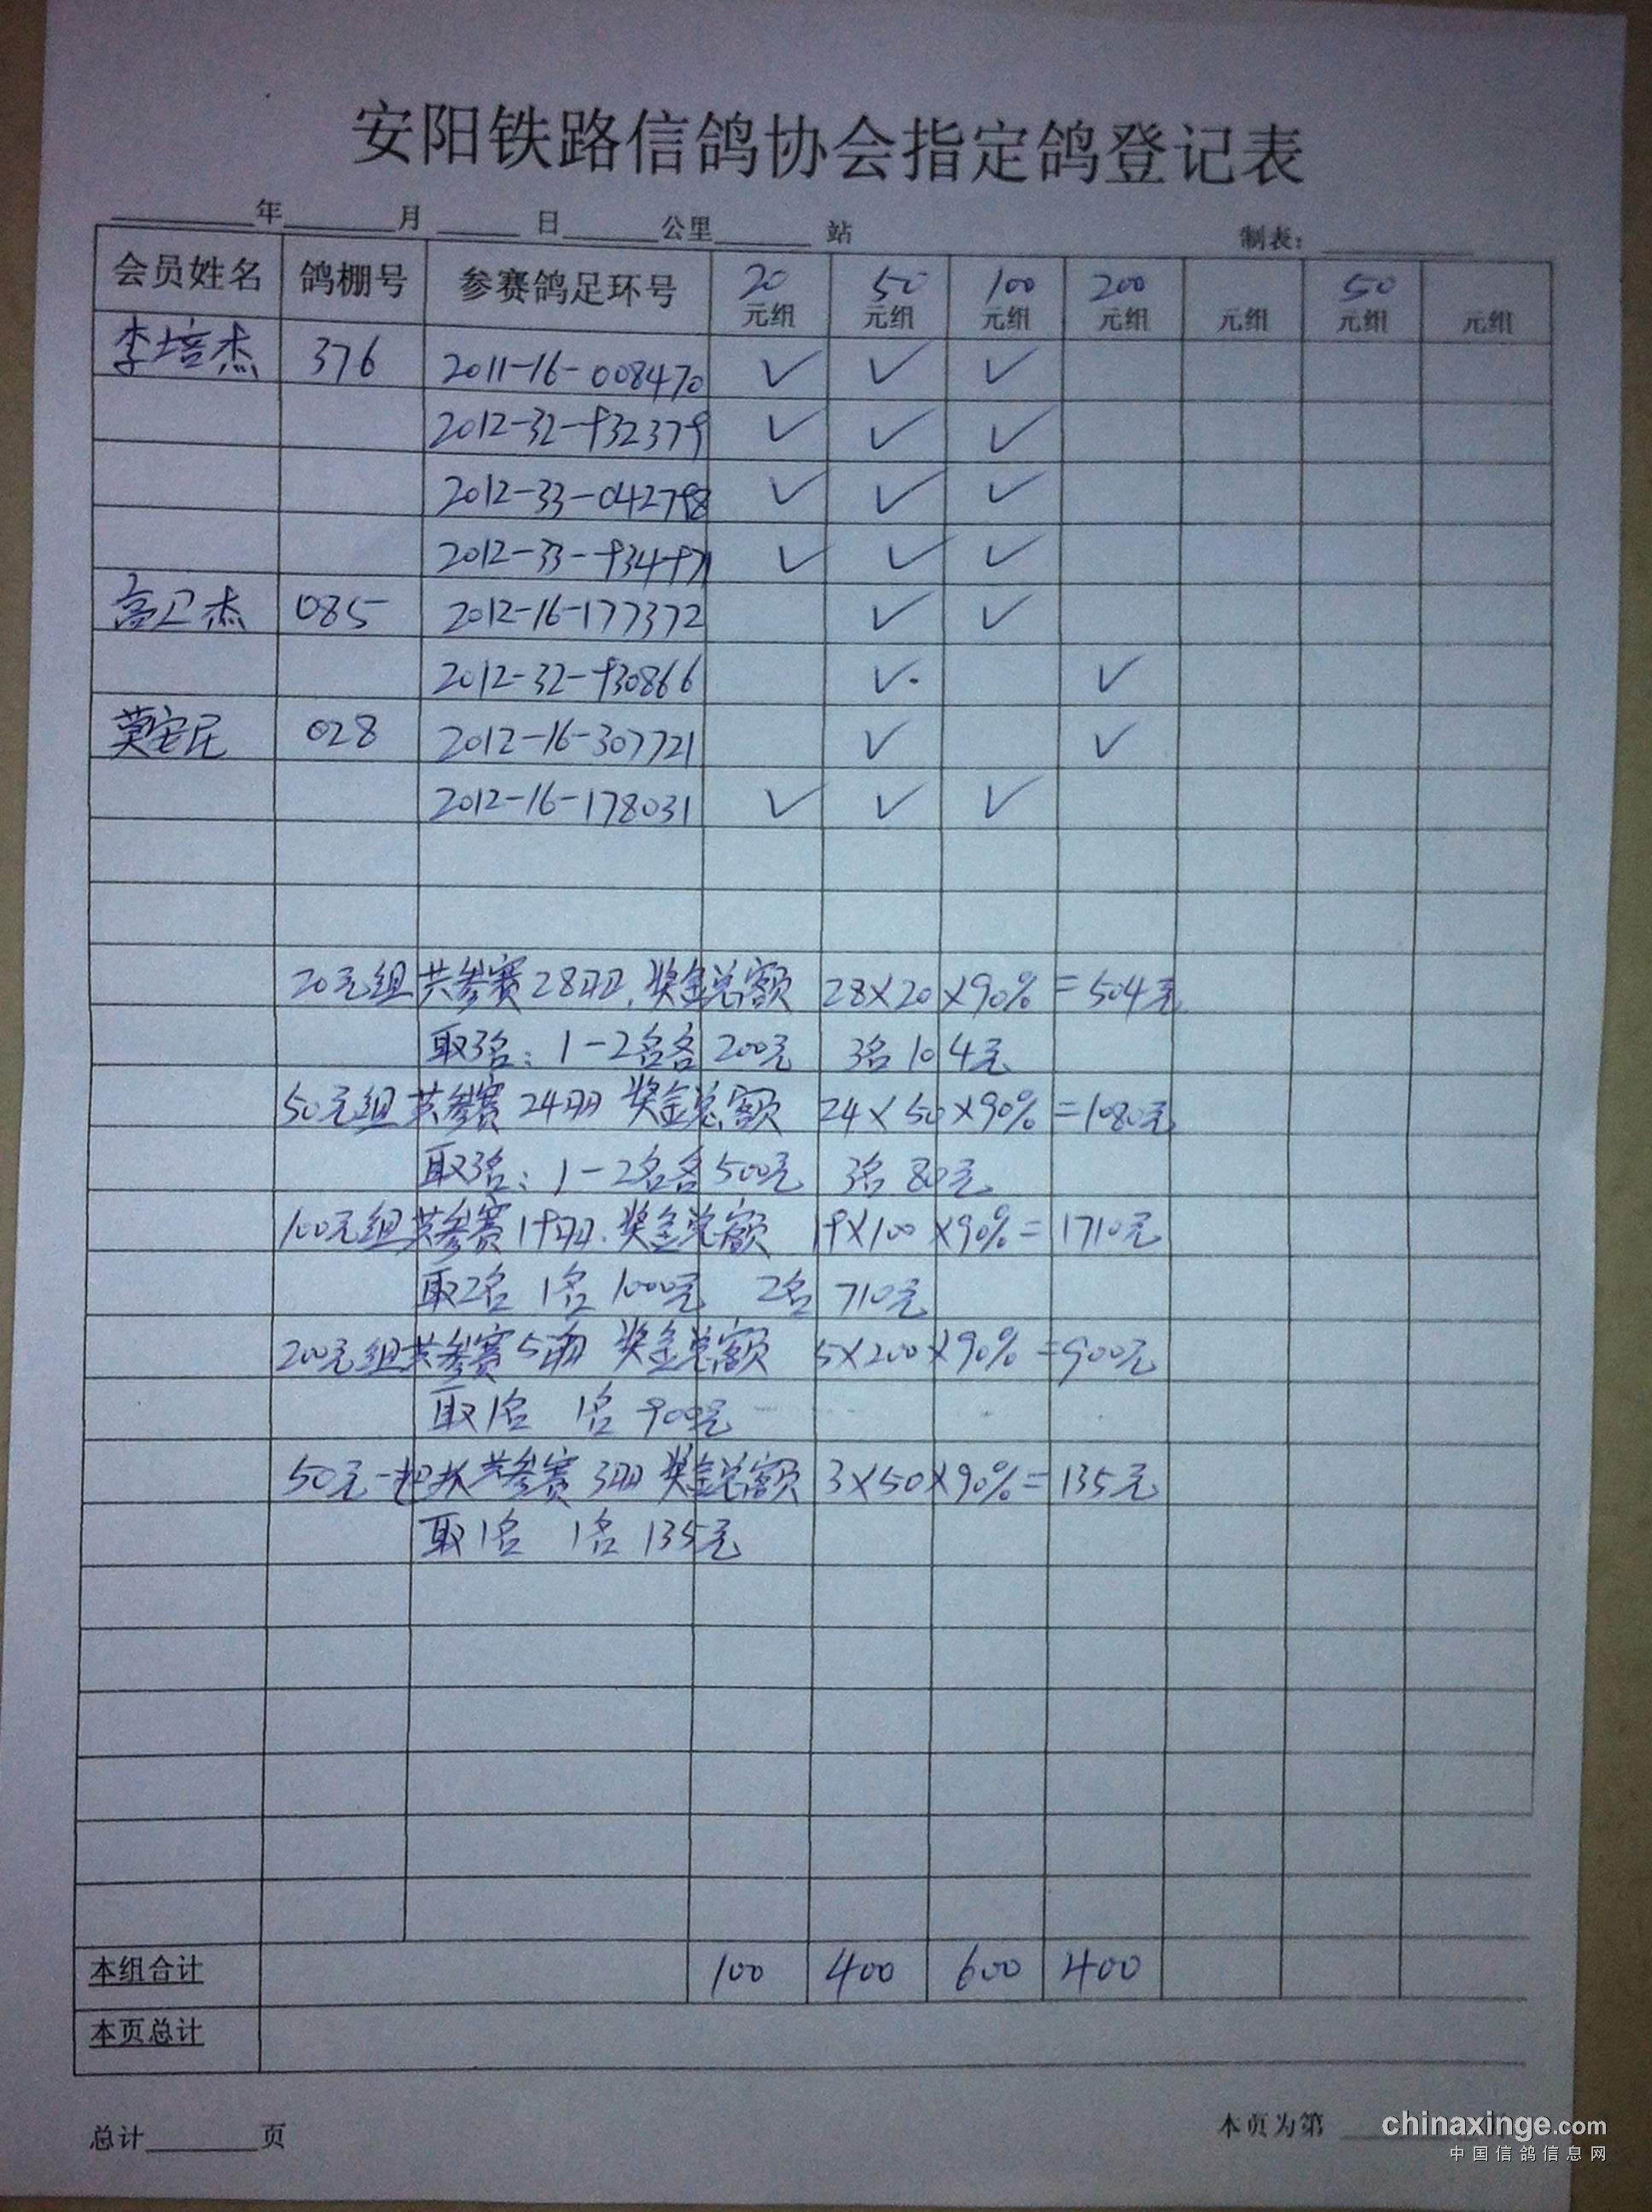 安阳铁路信鸽协会指定鸽登记表
年 月 日 公里 站 制表：
会员姓名 鸽棚号 参赛鸽足环号 20元组 50元组 100元组 200元组 元组 50元组 元组
李培杰 376 2011-16-008470 ✓ ✓ ✓
2012-32-932379 ✓ ✓ ✓
2012-33-042798 ✓ ✓ ✓
2012-33-934971 ✓ ✓ ✓
高卫杰 085 2012-16-177372 ✓ ✓
2012-32-930866 ✓ ✓
莫安民 028 2012-16-307721 ✓ ✓
2012-16-178031 ✓ ✓ ✓
20元组共参赛28羽.奖金总额 28×20×90%=504元
取3名：1-2名各200元 3名104元
50元组共参赛24羽 奖金总额 24×50×90%=1080元
取3名：1-2名各500元 3名80元
100元组共参赛19羽.奖金总额 19×100×90%=1710元
取2名 1名1000元 2名710元
200元组共参赛5羽 奖金总额 5×200×90%=900元
取1名 1名900元
50元一把抓共参赛3羽 奖金总额 3×50×90%=135元
取1名 1名135元
本组合计 100 400 600 400
本页总计
总计 页 本页为第
chinaxinge.com
中国信鸽信息网